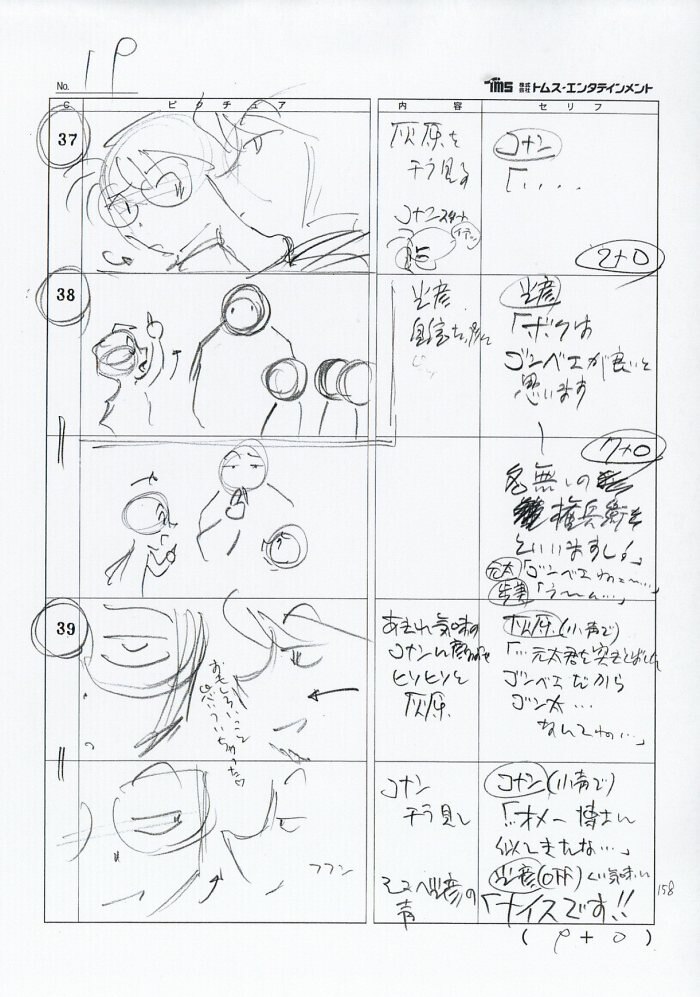 No. 19
TMS 株式会社 トムス・エンタテインメント
C ピクチュア 内容 セリフ
37
灰原を
チラ見る
コナン
「....
2+0
38
光彦
光彦
「ボクは
ゴンベエが良いと
思います
7+0
名無しの
権兵衛を
といいますし!」
元太「ゴンベエねェ〜...」
歩美「う〜ん...」
39
あきれ気味の
コナンに顔よせ
ヒソヒソと
灰原
おもしろいこと
思いついちゃった♡
灰原(小声で)
「...元太君を突きとばした
ゴンベエだから
ゴン太...
なんてね...」
コナン
チラ見し
フフン
コナン(小声で)
「オメー博士に
似てきたな...」
光彦(OFF)くい気味に
光彦の
声
「ナイスです!!
158
(9+0)